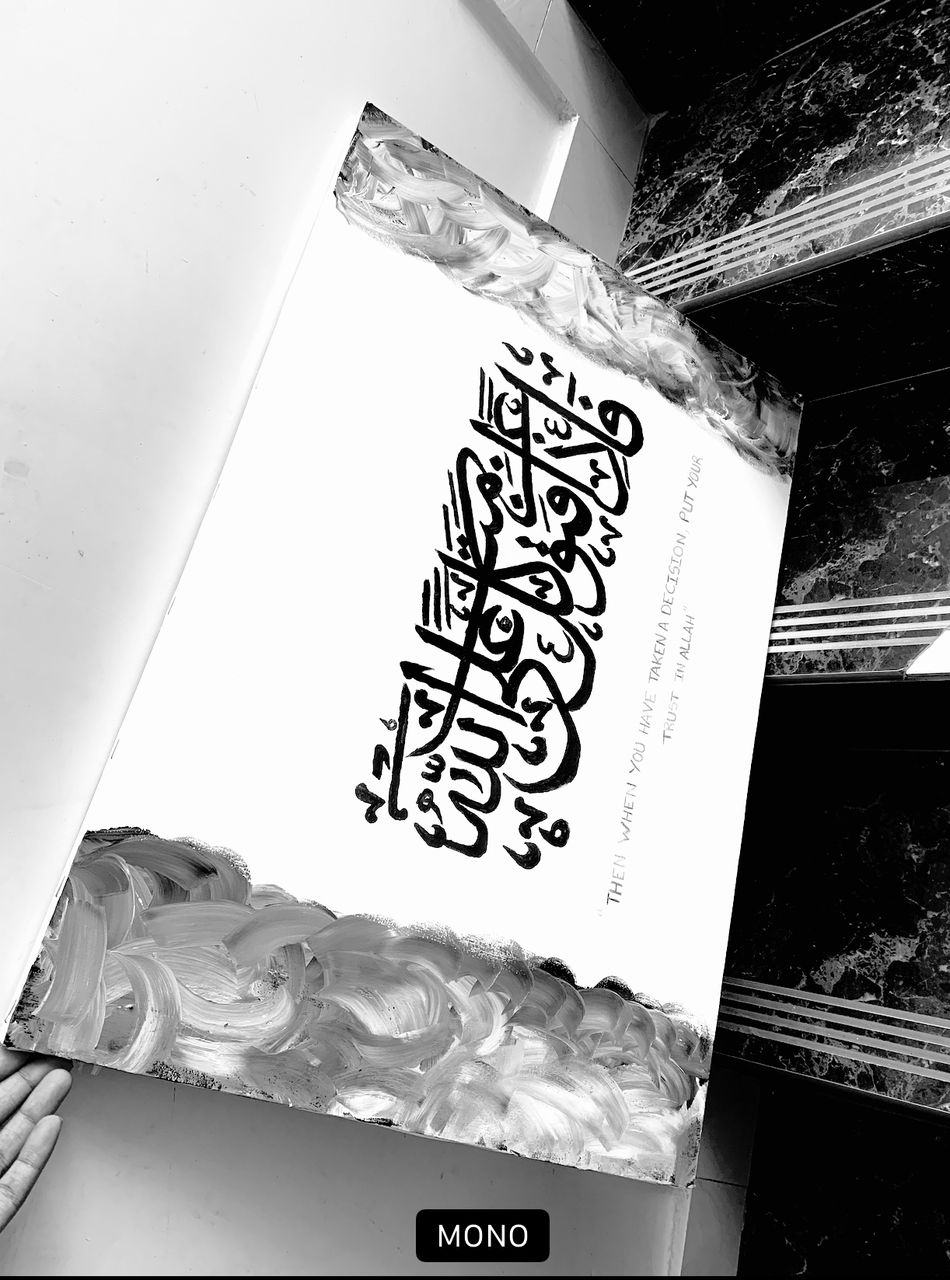 فإذا عزمت
فتوكل على الله
"THEN WHEN YOU HAVE TAKEN A DECISION, PUT YOUR
TRUST IN ALLAH"
MONO